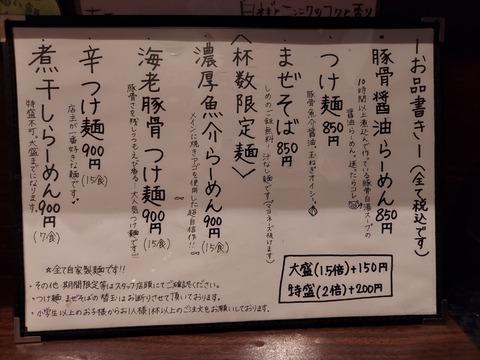 白だしとニンニクのコクと香り
ーお品書きー(全て税込です)
豚骨醤油らーめん 850円
10時間以上煮込んで作っている豚骨白湯スープの
醤油らーめん。迷ったらコレ
つけ麺 850円
豚骨魚介醤油。玉ねぎオイシイ。
まぜそば 850円
しめのご飯無料!汁なし麺です(マヨネーズ抜けます)
〈杯数限定麺〉
濃厚魚介らーめん 900円
(15食)
メインに焼きアゴを使用した超自信作!!
海老豚骨つけ麺 900円
(15食)
豚骨さを残しつつもえび香る…大人気つけ麺です!!!
辛つけ麺 900円
(15食)
店主が一番好きな麺です
煮干しらーめん 900円
(7食)
特盛不可。大盛までになります。
大盛(1.5倍)+150円
特盛(2倍)+200円
☆全て自家製麺です!!
・その他 期間限定等はスタッフ店頭にてご確認ください。
・つけ麺 まぜそばの替玉はお断りさせて頂いております。
・小学生以上のお子様からお1人様1杯以上のご注文をお願いしております。